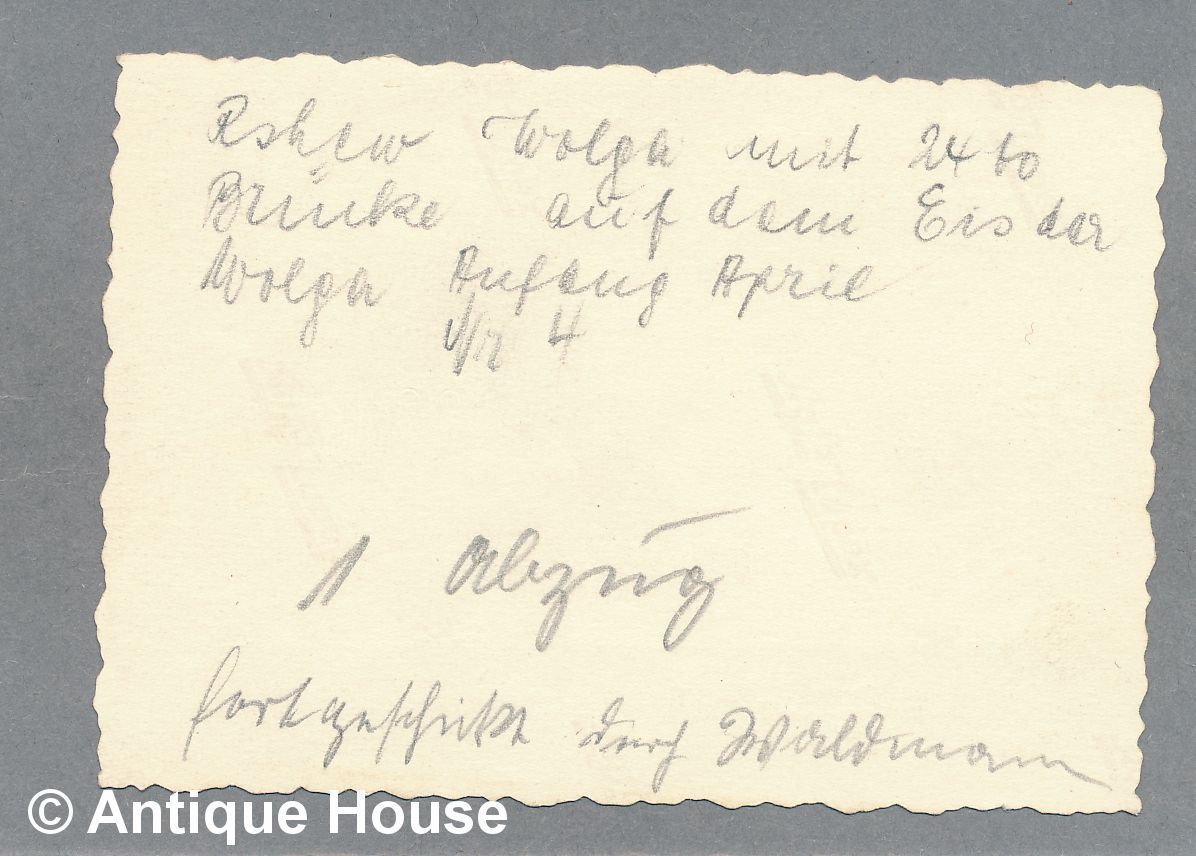 Rshew Wolga mit 24 to
Brücke auf dem Eis der
Wolga Anfang April
Nr 4
1 Abzug
fortgeschikt durch Waldmann
© Antique House